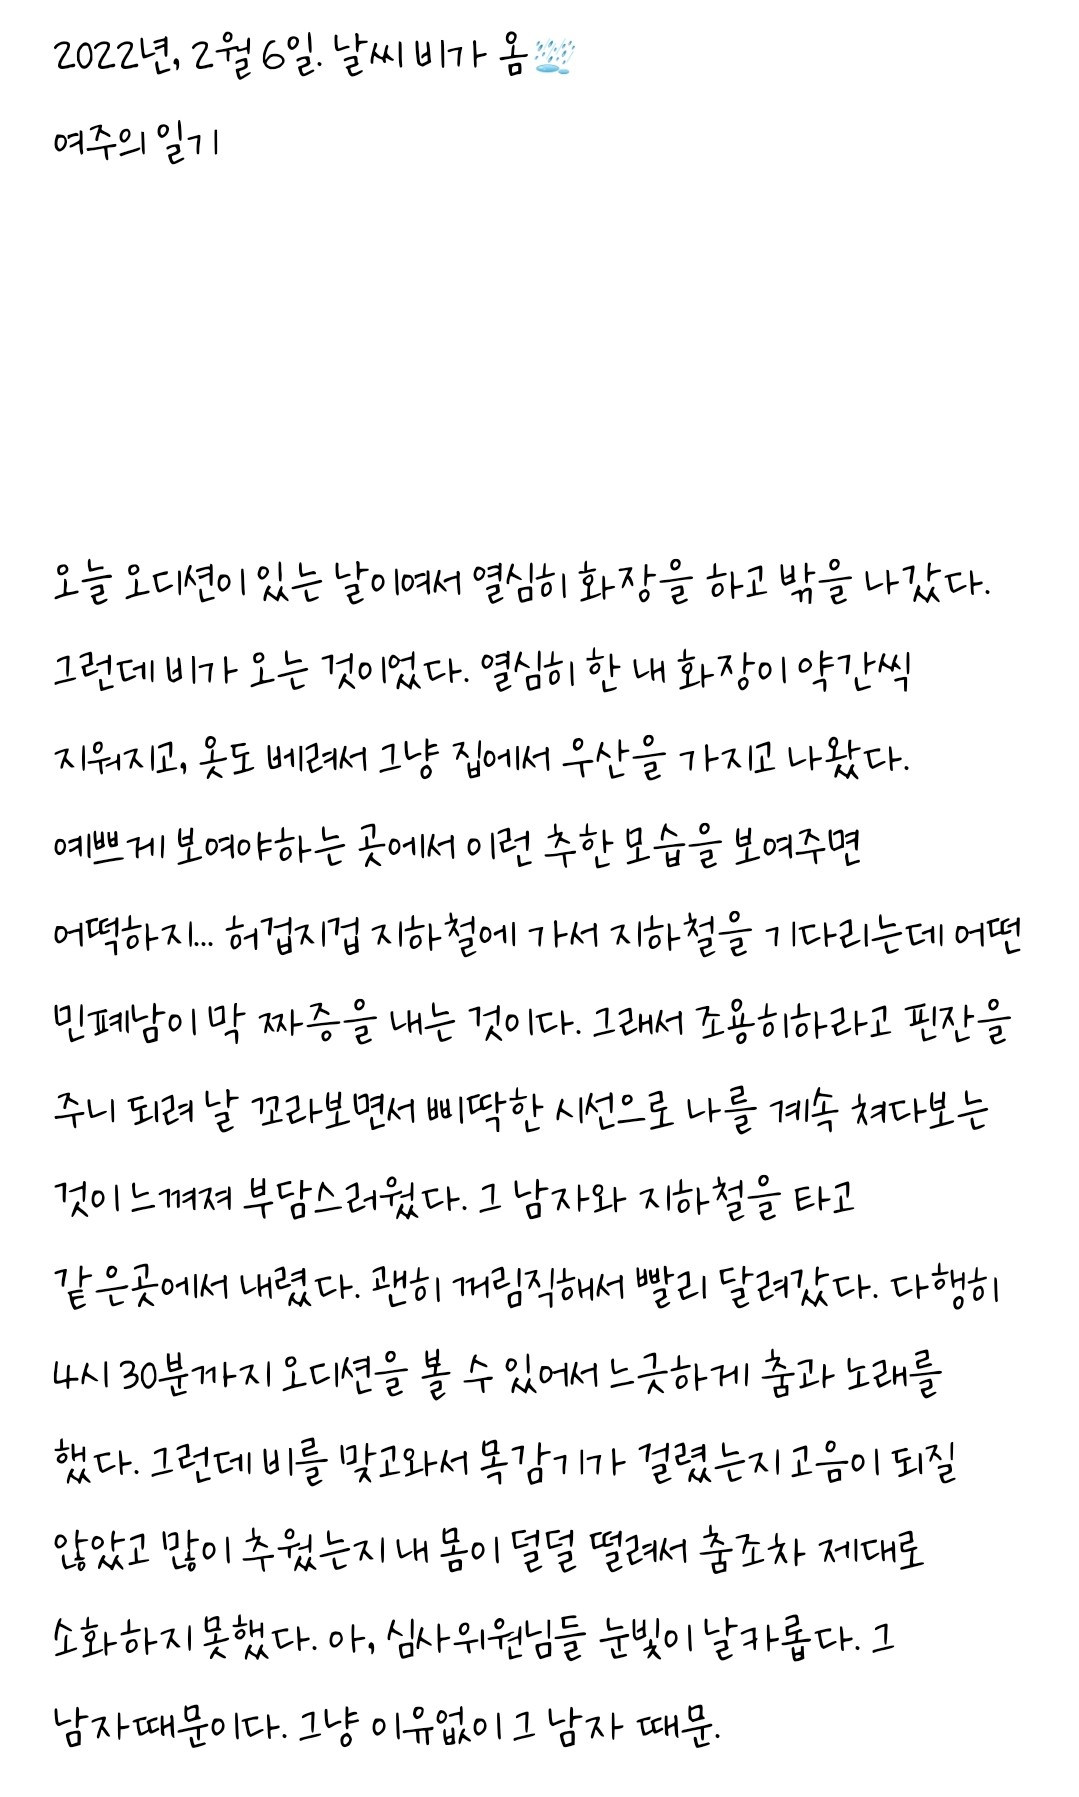 2022년, 2월 6일. 날씨 비가 옴🌧
여주의 일기
오늘 오디션이 있는 날이여서 열심히 화장을 하고 밖을 나갔다.
그런데 비가 오는 것이었다. 열심히 한 내 화장이 약간씩
지워지고, 옷도 베려서 그냥 집에서 우산을 가지고 나왔다.
예쁘게 보여야하는 곳에서 이런 추한 모습을 보여주면
어떡하지... 허겁지겁 지하철에 가서 지하철을 기다리는데 어떤
민폐남이 막 짜증을 내는 것이다. 그래서 조용히하라고 핀잔을
주니 되려 날 꼬라보면서 삐딱한 시선으로 나를 계속 쳐다보는
것이 느껴져 부담스러웠다. 그 남자와 지하철을 타고
같은곳에서 내렸다. 괜히 꺼림직해서 빨리 달려갔다. 다행히
4시 30분까지 오디션을 볼 수 있어서 느긋하게 춤과 노래를
했다. 그런데 비를 맞고와서 목감기가 걸렸는지 고음이 되질
않았고 많이 추웠는지 내 몸이 덜덜 떨려서 춤조차 제대로
소화하지 못했다. 아, 심사위원님들 눈빛이 날카롭다. 그
남자때문이다. 그냥 이유없이 그 남자 때문.